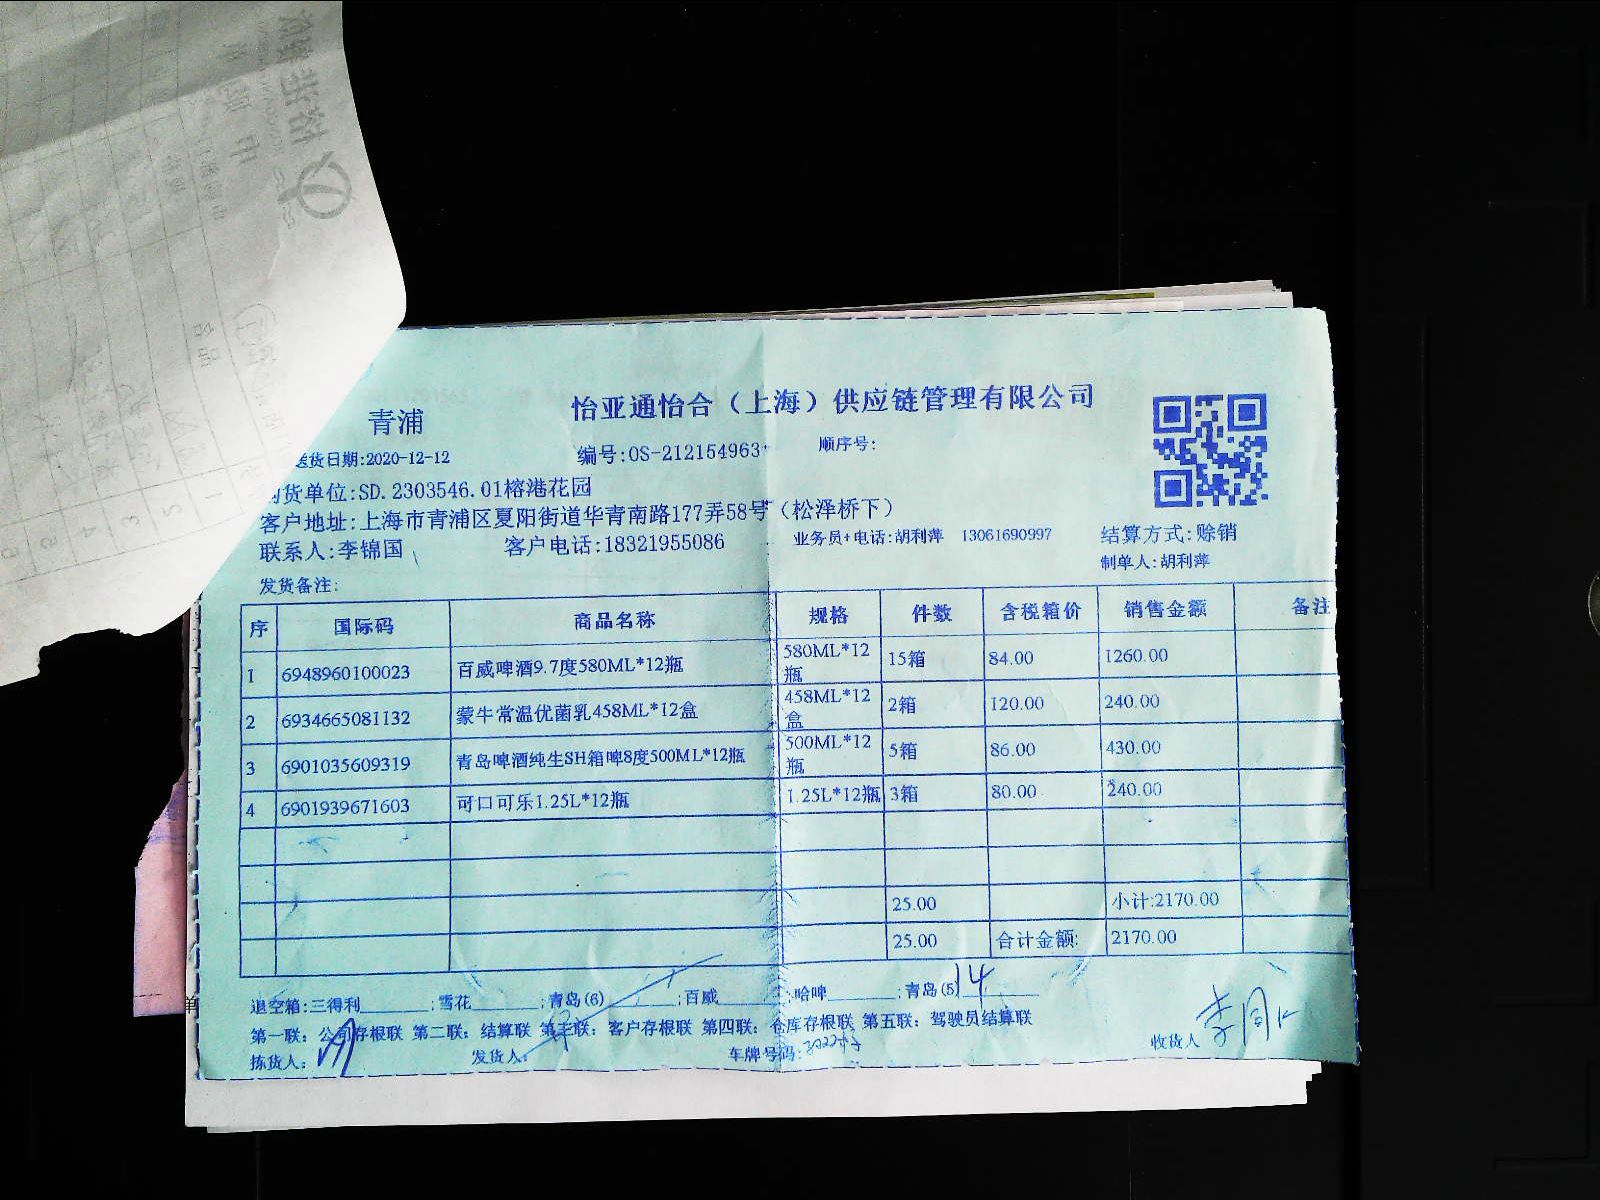 青浦
怡亚通怡合（上海）供应链管理有限公司
送货日期:2020-12-12 编号:OS-212154963 顺序号:
货单位:SD.2303546.01榕港花园
客户地址:上海市青浦区夏阳街道华青南路177弄58号（松泽桥下）
联系人:李锦国 客户电话:18321955086 业务员+电话:胡利萍 13061690997 结算方式:赊销
制单人:胡利萍
发货备注:
序 国际码 商品名称 规格 件数 含税箱价 销售金额 备注
1 6948960100023 百威啤酒9.7度580ML*12瓶 580ML*12瓶 15箱 84.00 1260.00
2 6934665081132 蒙牛常温优菌乳458ML*12盒 458ML*12盒 2箱 120.00 240.00
3 6901035609319 青岛啤酒纯生SH箱啤8度500ML*12瓶 500ML*12瓶 5箱 86.00 430.00
4 6901939671603 可口可乐1.25L*12瓶 1.25L*12瓶 3箱 80.00 240.00
25.00 小计:2170.00
25.00 合计金额: 2170.00
退空箱:三得利______;雪花______;青岛(6)______;百威______;哈啤______;青岛(5) 14
第一联: 公司存根联 第二联: 结算联 第三联: 客户存根联 第四联: 仓库存根联 第五联: 驾驶员结算联
拣货人: 发货人: 车牌号码: 收货人